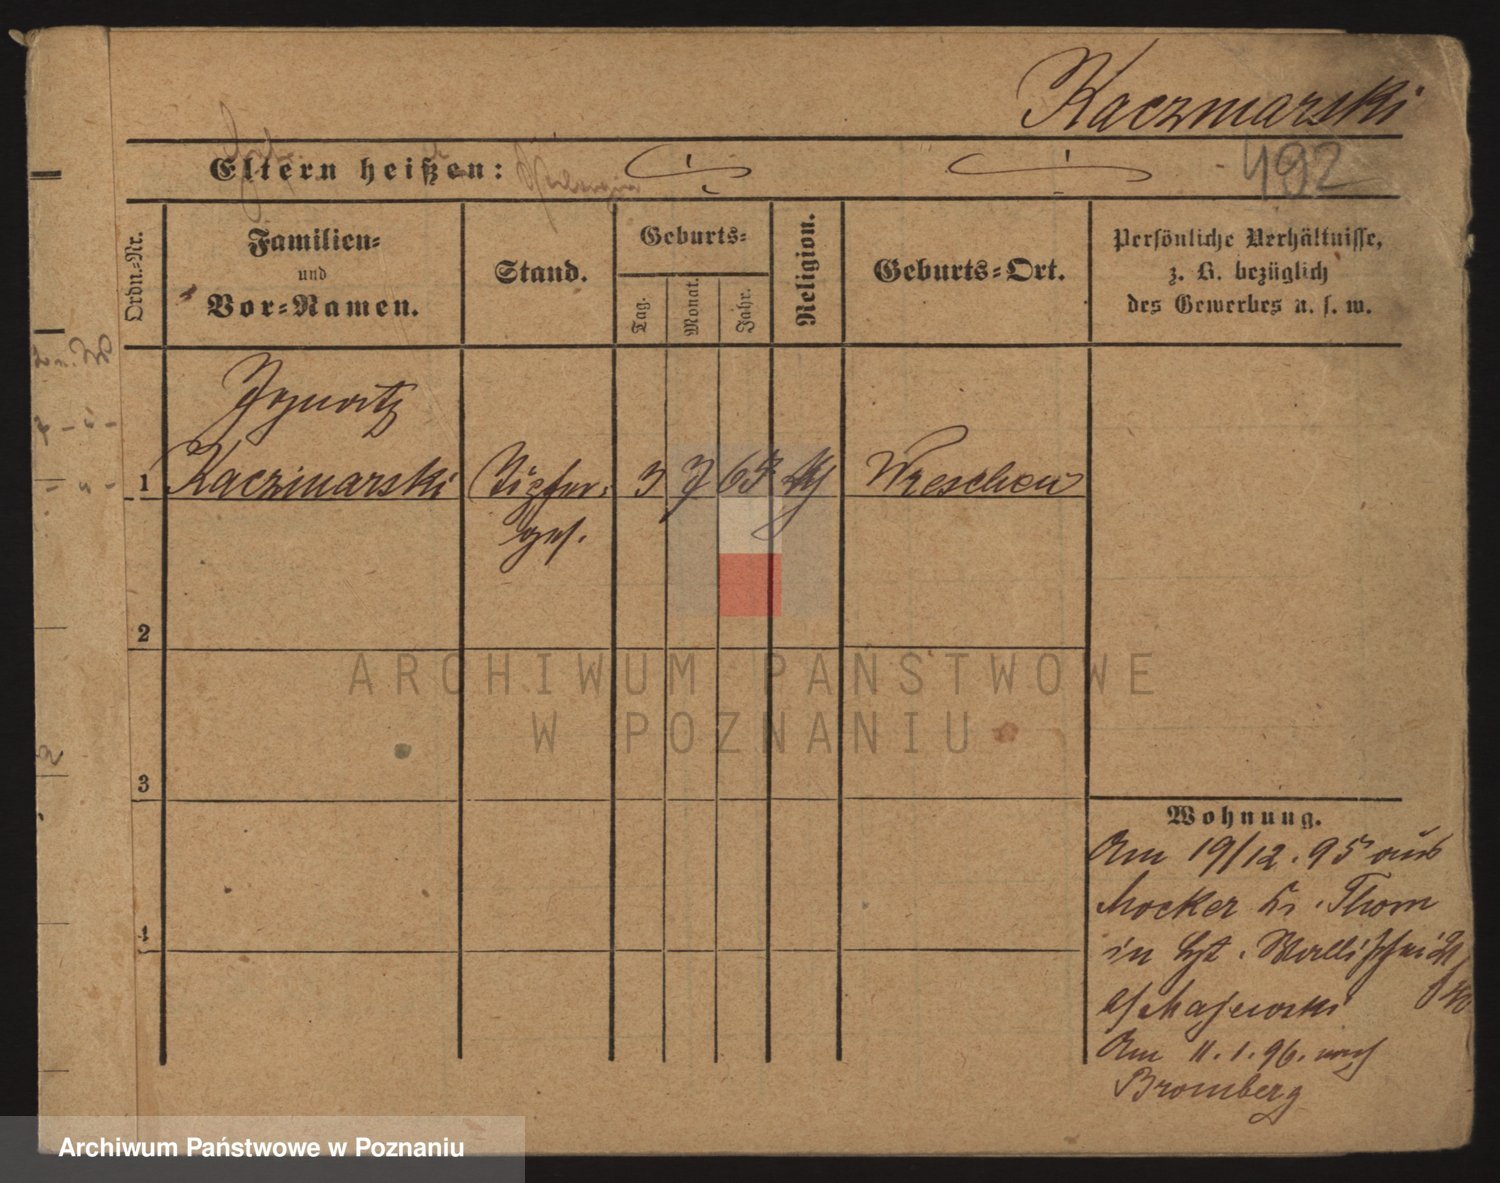 Kaczmarski
492
Eltern heißen:
Ordn.-Nr.
Familien-
und
Vor-Namen.
Stand.
Geburts-
Tag.
Monat.
Jahr.
Religion.
Geburts-Ort.
Persönliche Verhältnisse,
z. B. bezüglich
des Gewerbes u. s. w.
Ignatz
1 Kaczmarski 3 7 Wreschen
ges.
2
3
4
Wohnung.
Am 19/12. 95 aus
Mocker Kr. Thorn
in
Majewski
Am 11. 1. 96. nach
Bromberg
ARCHIWUM PAŃSTWOWE
W POZNANIU
Archiwum Państwowe w Poznaniu